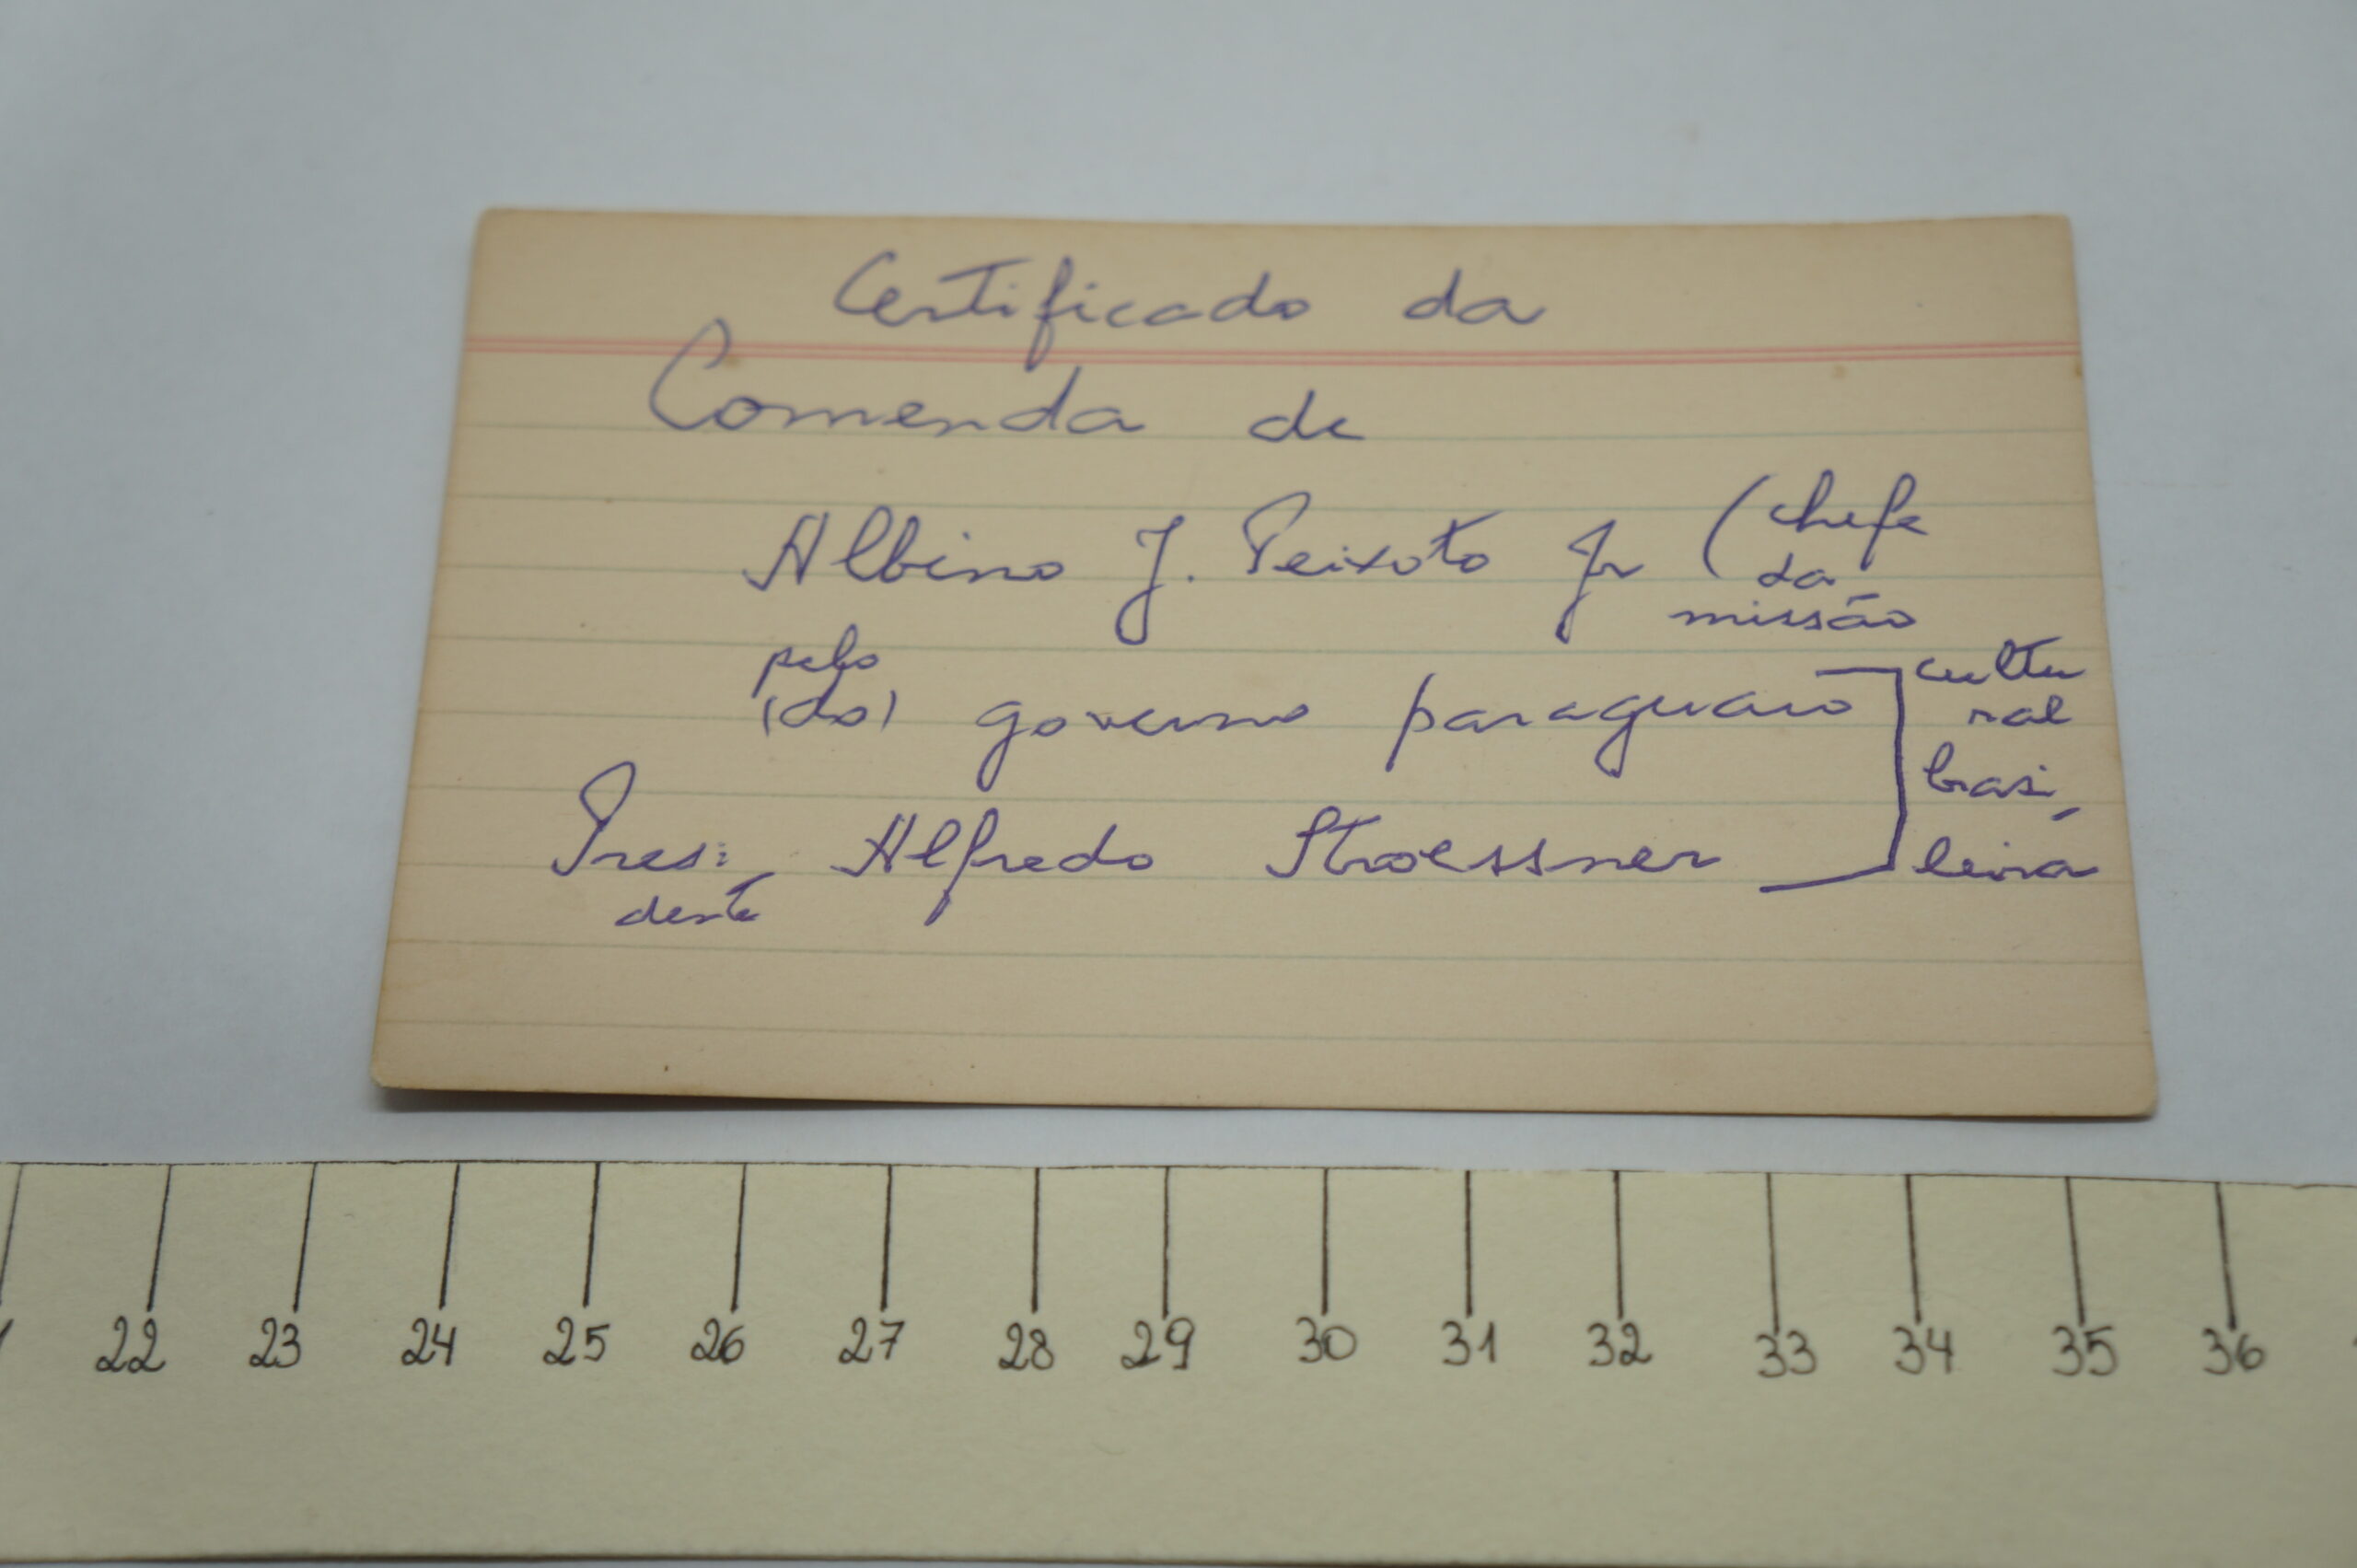 Certificado da
Comenda de
Albino J. Peixoto Jr (chefe
da
missão
cultu
ral
brasi
leira
pelo
(do) governo paraguaio
Presi
dente Alfredo Stroessner
22 23 24 25 26 27 28 29 30 31 32 33 34 35 36